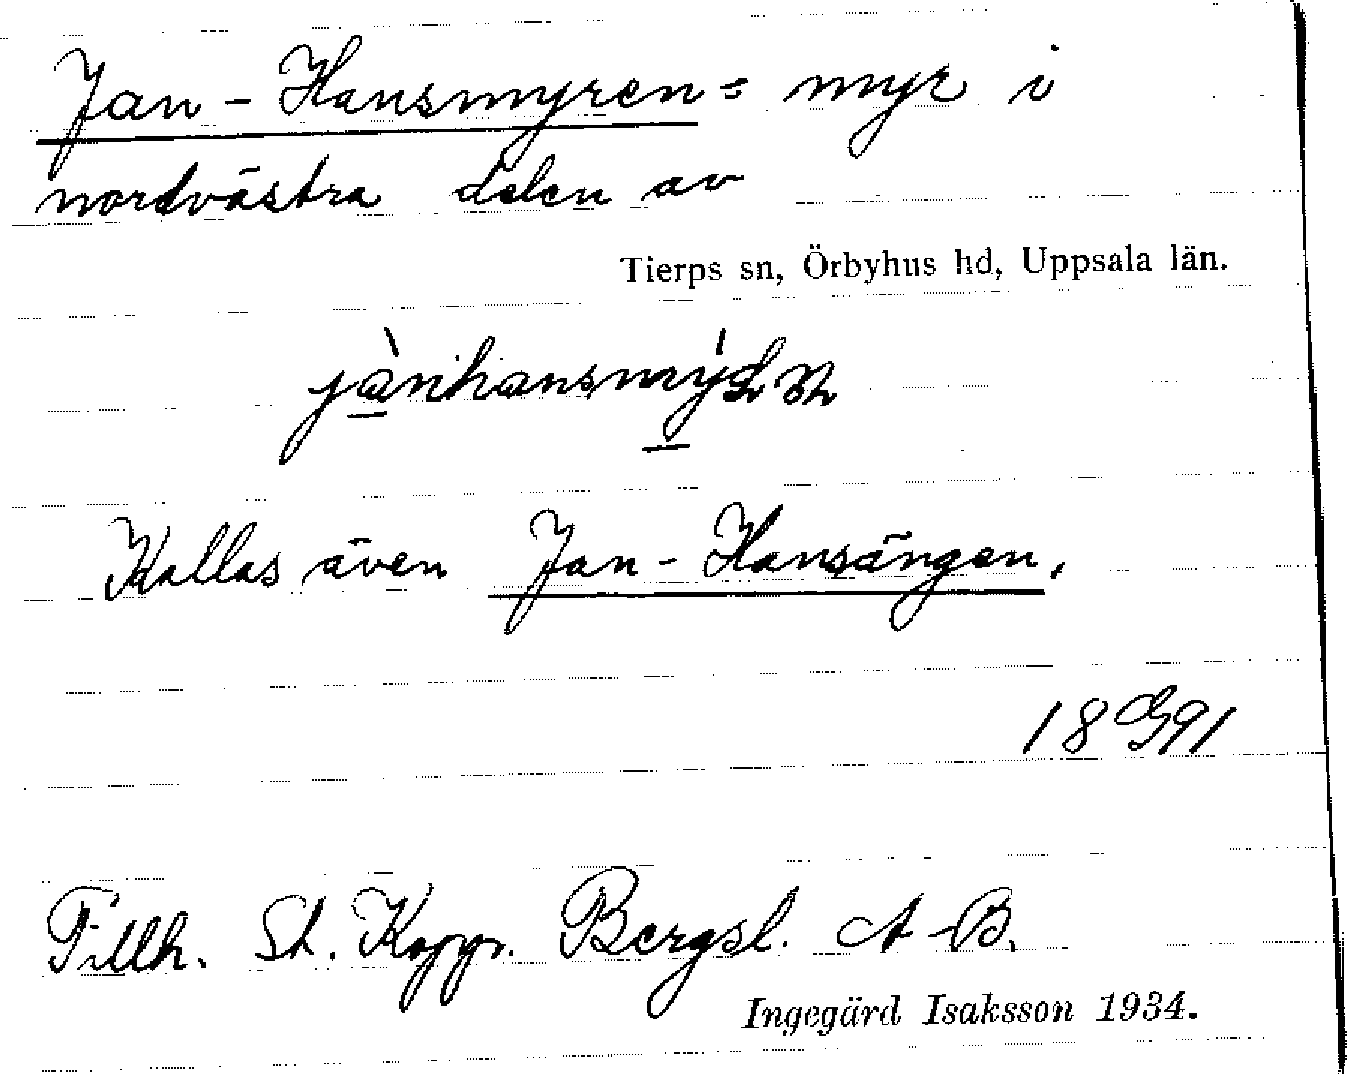 Jan-Hansmyren = myr i
nordvästra delen av
Tierps sn, Örbyhus hd, Uppsala län.
Kallas även Jan-Hansängen.
18 G 91
Tillh. St. Koppr. Bergsl. A-B.
Ingegärd Isaksson 1934.